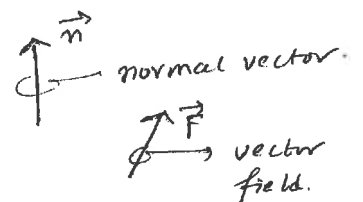 n⃗
normal vector.
F⃗
vector
field.